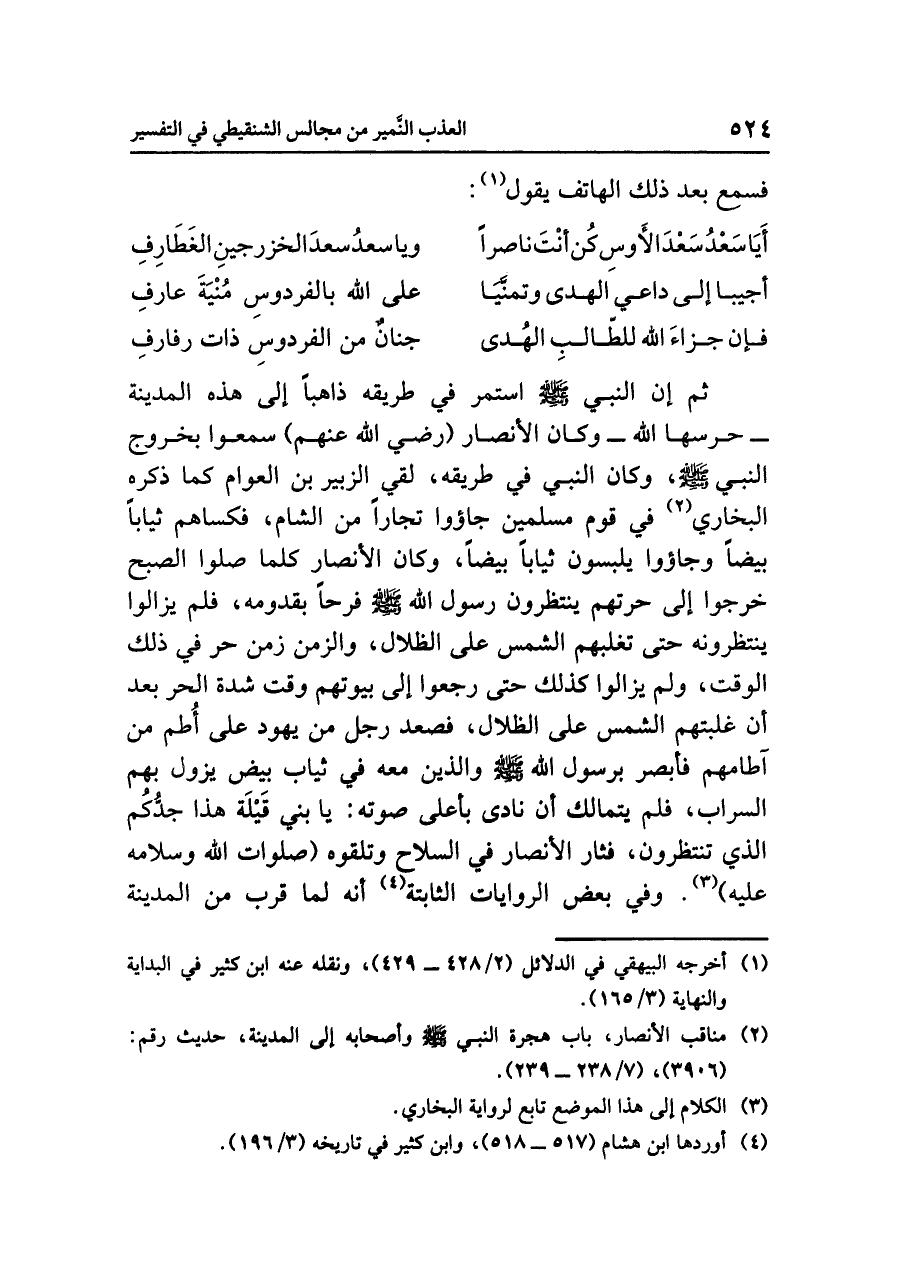 ٥٢٤ العذب النَّمير من مجالس الشنقيطي في التفسير
فسمع بعد ذلك الهاتف يقول(١) :
أَيَا سَعْدُ سَعْدَ الأَوسِ كُن أنْتَ ناصراً ويا سعدُ سعدَ الخزرجينِ الغَطَارِفِ
أجيبا إلى داعي الهدى وتمنَّيَا على الله بالفردوسِ مُنْيَةَ عارفِ
فإن جزاءَ الله للطَّالبِ الهُدى جنانٌ من الفردوسِ ذات رفارفِ
ثم إن النبي ﷺ استمر في طريقه ذاهباً إلى هذه المدينة
ــ حرسها الله ــ وكان الأنصار (رضي الله عنهم) سمعوا بخروج
النبي ﷺ، وكان النبي في طريقه، لقي الزبير بن العوام كما ذكره
البخاري(٢) في قوم مسلمين جاؤوا تجاراً من الشام، فكساهم ثياباً
بيضاً وجاؤوا يلبسون ثياباً بيضاً، وكان الأنصار كلما صلوا الصبح
خرجوا إلى حرتهم ينتظرون رسول الله ﷺ فرحاً بقدومه، فلم يزالوا
ينتظرونه حتى تغلبهم الشمس على الظلال، والزمن زمن حر في ذلك
الوقت، ولم يزالوا كذلك حتى رجعوا إلى بيوتهم وقت شدة الحر بعد
أن غلبتهم الشمس على الظلال، فصعد رجل من يهود على أُطم من
آطامهم فأبصر برسول الله ﷺ والذين معه في ثياب بيض يزول بهم
السراب، فلم يتمالك أن نادى بأعلى صوته: يا بني قَيْلَة هذا جدُّكُم
الذي تنتظرون، فثار الأنصار في السلاح وتلقوه (صلوات الله وسلامه
عليه)(٣). وفي بعض الروايات الثابتة(٤) أنه لما قرب من المدينة
(١) أخرجه البيهقي في الدلائل (٢/ ٤٢٨ ــ ٤٢٩)، ونقله عنه ابن كثير في البداية
والنهاية (٣/ ١٦٥).
(٢) مناقب الأنصار، باب هجرة النبي ﷺ وأصحابه إلى المدينة، حديث رقم:
(٣٩٠٦)، (٧/ ٢٣٨ ــ ٢٣٩).
(٣) الكلام إلى هذا الموضع تابع لرواية البخاري.
(٤) أوردها ابن هشام (٥١٧ ــ ٥١٨)، وابن كثير في تاريخه (٣/ ١٩٦).